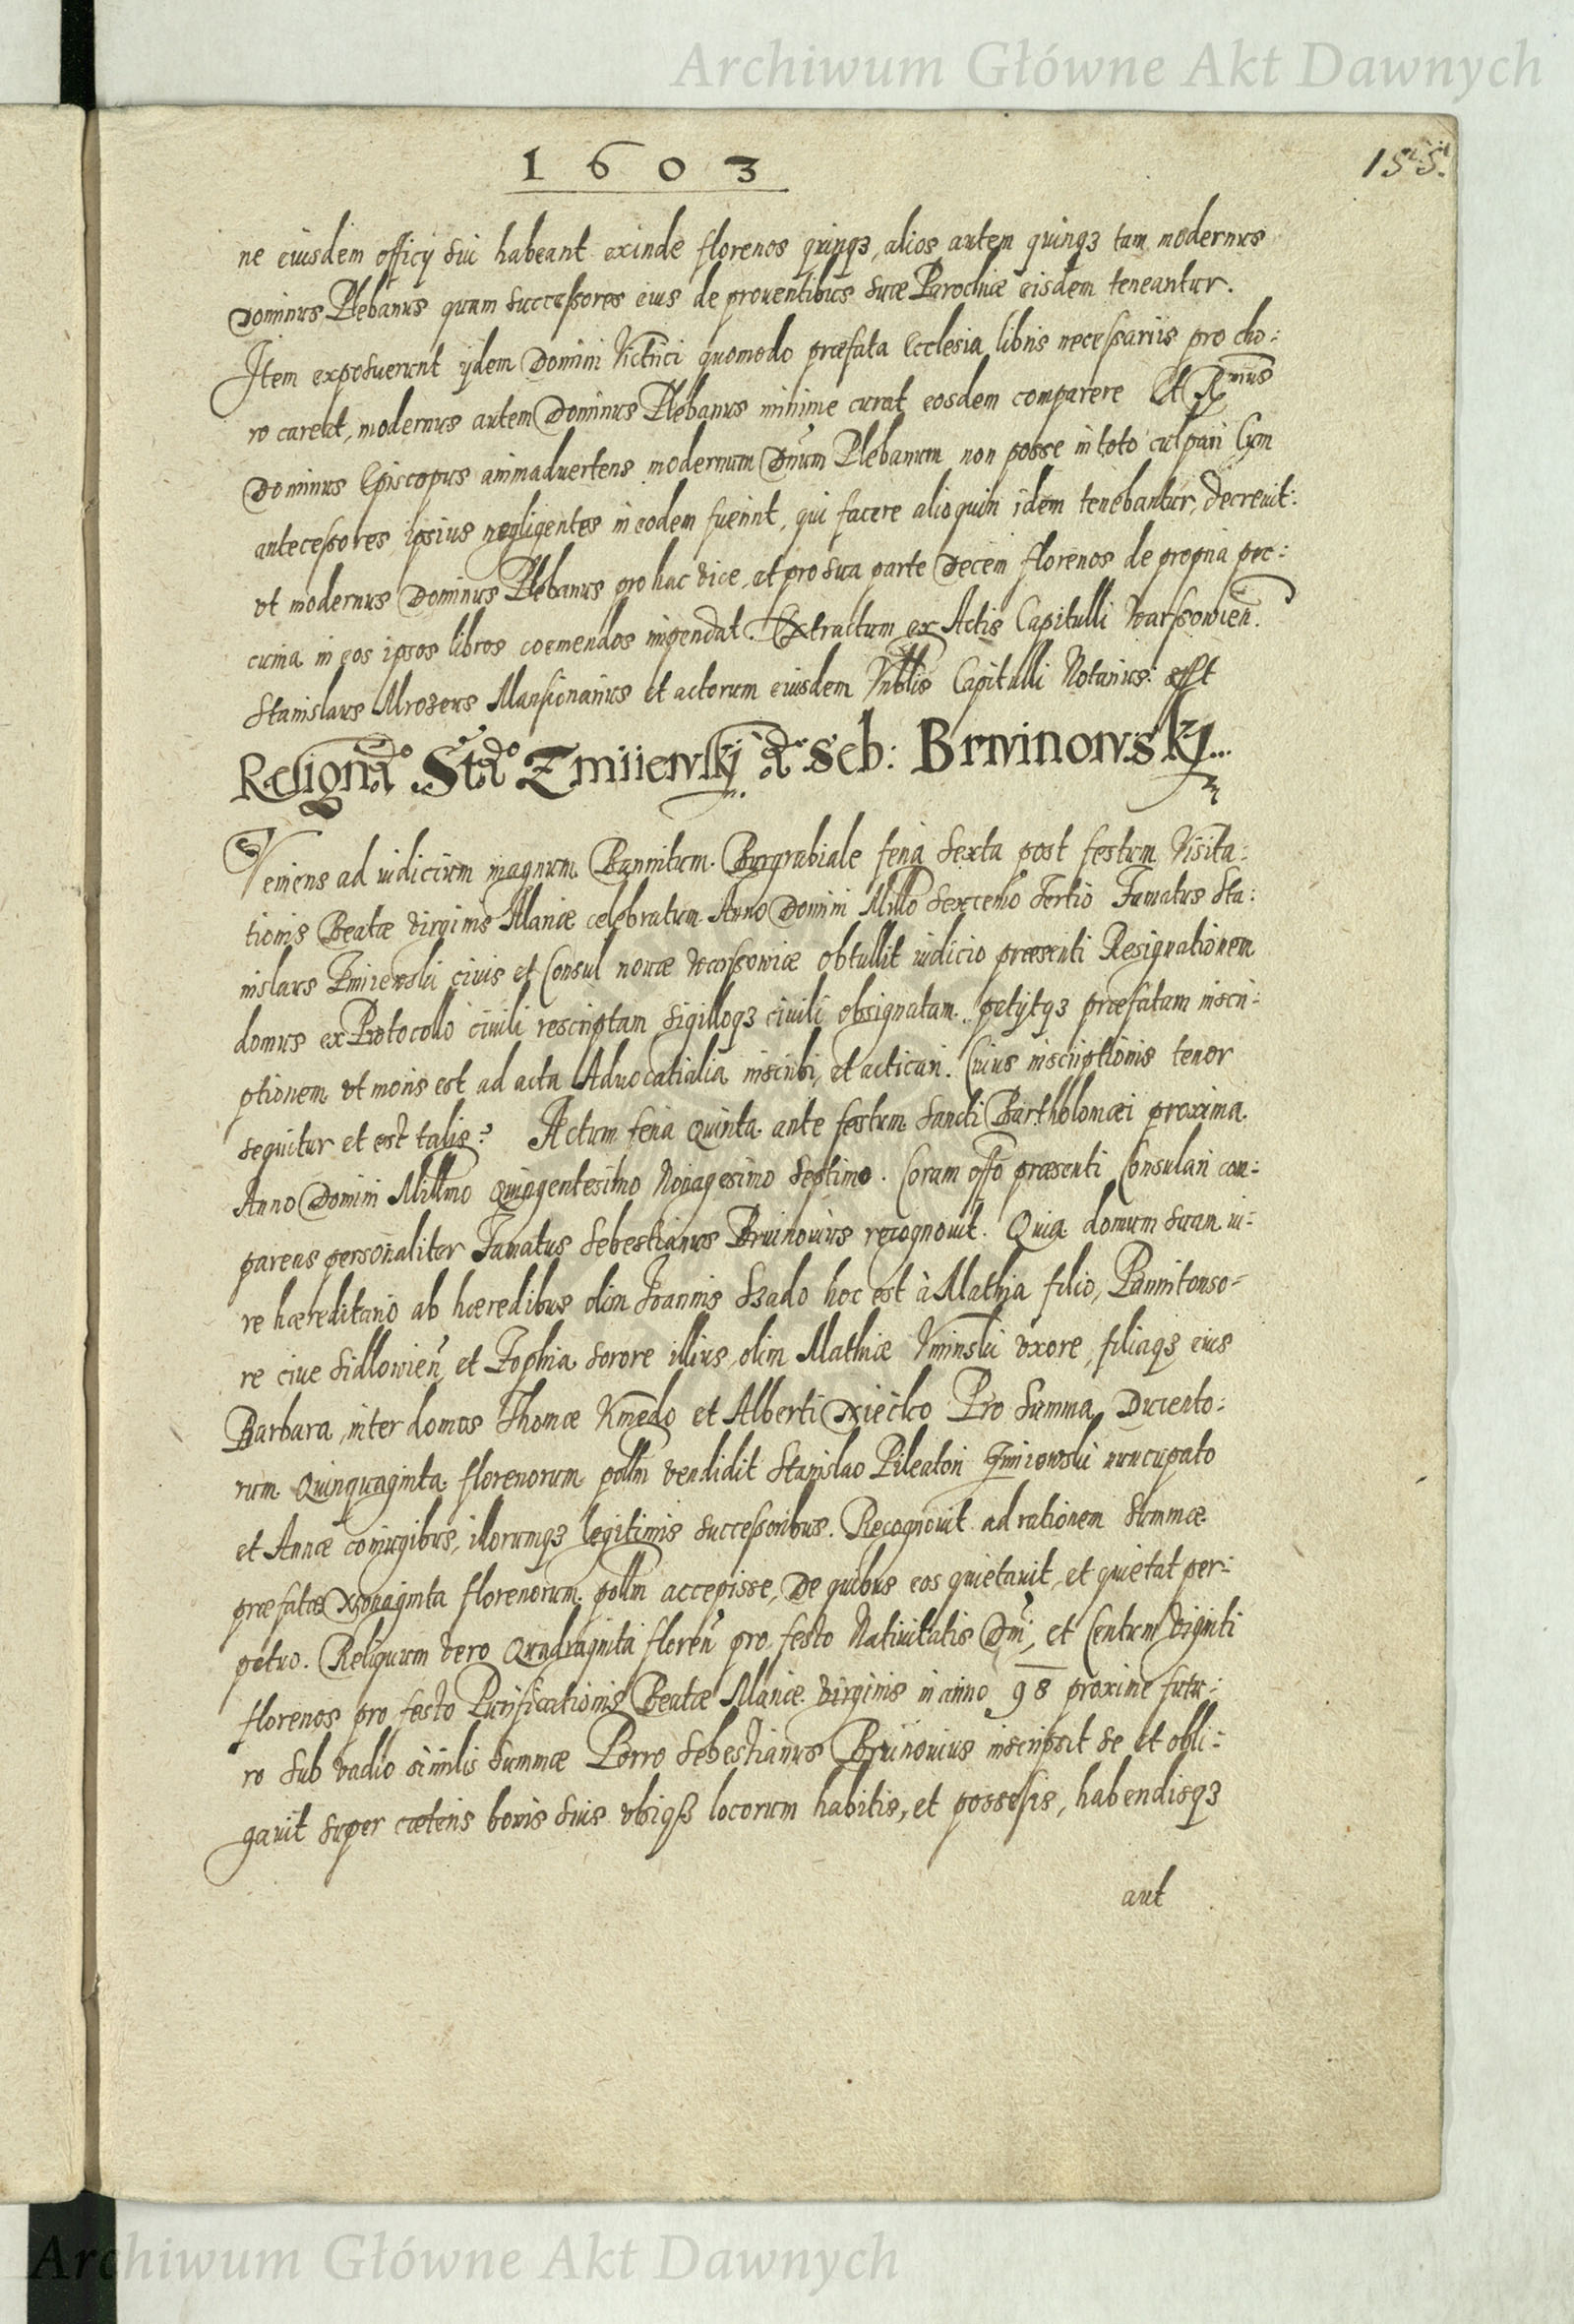 Archiwum Główne Akt Dawnych
1603
155.
ne eiusdem officij sui habeant exinde florenos quinqȝ, alios autem quinqȝ tam modernus
Dominus Plebanus quam successores eius de prouentibus suæ Parochiæ eisdem teneantur.
Item exposuerunt ijdem Domini Victrici quomodo præfata Ecclesia libris necessariis pro cho:
ro careat, modernus autem Dominus Plebanus minime curat eosdem comparere Et Rmus
Dominus Episcopus animaduertens modernum Dnum Plebanum non posse in toto culpari Cum
antecessores ipsius negligentes in eodem fuerint, qui facere alioquin idem tenebantur, decreuit:
vt modernus Dominus Plebanus pro hac vice, et pro sua parte Decem florenos de propria pec:
cunia in eos ipsos libros coemendos impendat. Extractum ex Actis Capitulli Warssowien̄.
Stanislaus Mrozeus Mansionarius et actorum eiusdem Vnblis Capitulli Notarius: asst
Resignado Stado Zmiiewskj â Seb: Brwinowskj...
Veniens ad iudicium magnum Bannitum Burgrabiale feria Sexta post festum Visita:
tionis Beatæ virginis Mariæ celebratum Anno Domini Millo Sexcenmo Tertio Famatus Sta:
nislaus Zmiewski ciuis et Consul nouæ Warssowiæ obtullit iudicio præsenti Resignationem
domus ex Protocollo ciuili rescriptam sigilloqȝ ciuili obsignatam. petijtqȝ præfatam inscri:
ptionem vt moris est ad acta Aduocatialia inscribi, et acticari. Cuius inscriptionis tenor
sequitur et est talis: Actum feria Quinta ante festum Sancti Bartholomæi proxima
Anno Domini Millmo Quingentesimo Nonagesimo Septimo. Coram offo præsenti Consulari com:
parens personaliter Famatus Sebestianus Bruinouius recognouit. Quia domum suam iu:
re hæreditario ab hæredibus olim Joannis Szado hoc est à Mathia filio, Pannitonso:
re ciue Sidlowien̄, et Zophia sorore illius, olim Mathiæ Vminski vxore, filiaqȝ eius
Barbara, inter domos Thomæ Kmedo et Alberti Dziecko Pro Summa Ducento:
rum Quinquaginta florenorum pollm vendidit Stanislao Pileatori Zmiewski nuncupato
et Annæ coniugibus, illorumqȝ legitimis successoribus. Recognouit ad rationem Summæ
præfatæ Nonaginta florenorum pollm accepisse, De quibus eos quietauit, et quietat per:
petuo. Reliquum vero Quadraginta floren̄ pro festo Natiuitatis Dni, et Centum viginti
florenos pro festo Purificationis Beatæ Mariæ virginis in anno 98 proxime futu:
ro sub vadio similis summæ Porro Sebestianus Bruinouius inscripsit se et obli:
gauit super cæteris bonis suis vbiqȝ locorum habitis, et possessis, habendisqȝ
aut
Archiwum Główne Akt Dawnych